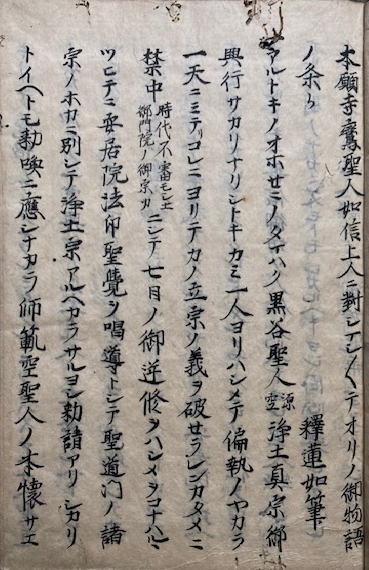 本願寺鸞聖人如信上人ニ對シマシ〱テオリノ御物語
ノ条々　釋蓮如筆
アルトキノオホセニノタマハク黒谷聖人源空浄土真宗御
興行サカリナリシトキカミ一人ヨリハシメテ偏執ノヤカラ
一天ニミテリコレニヨリテカノ立宗ノ義ヲ破セラレンカタメニ
禁中時代不審モシ土御門院ノ御宇カニシテ七日ノ御逆修ヲハシメヲコナハルヽ
ツヰテニ安居院法印聖覺ヲ唱導トシテ聖道門ノ諸
宗ノホカニ別シテ浄土宗アルヘカラサルヨシ勅請アリシカリ
トイヘトモ勅喚ニ應シナカラ師範空聖人ノ本懐サエ